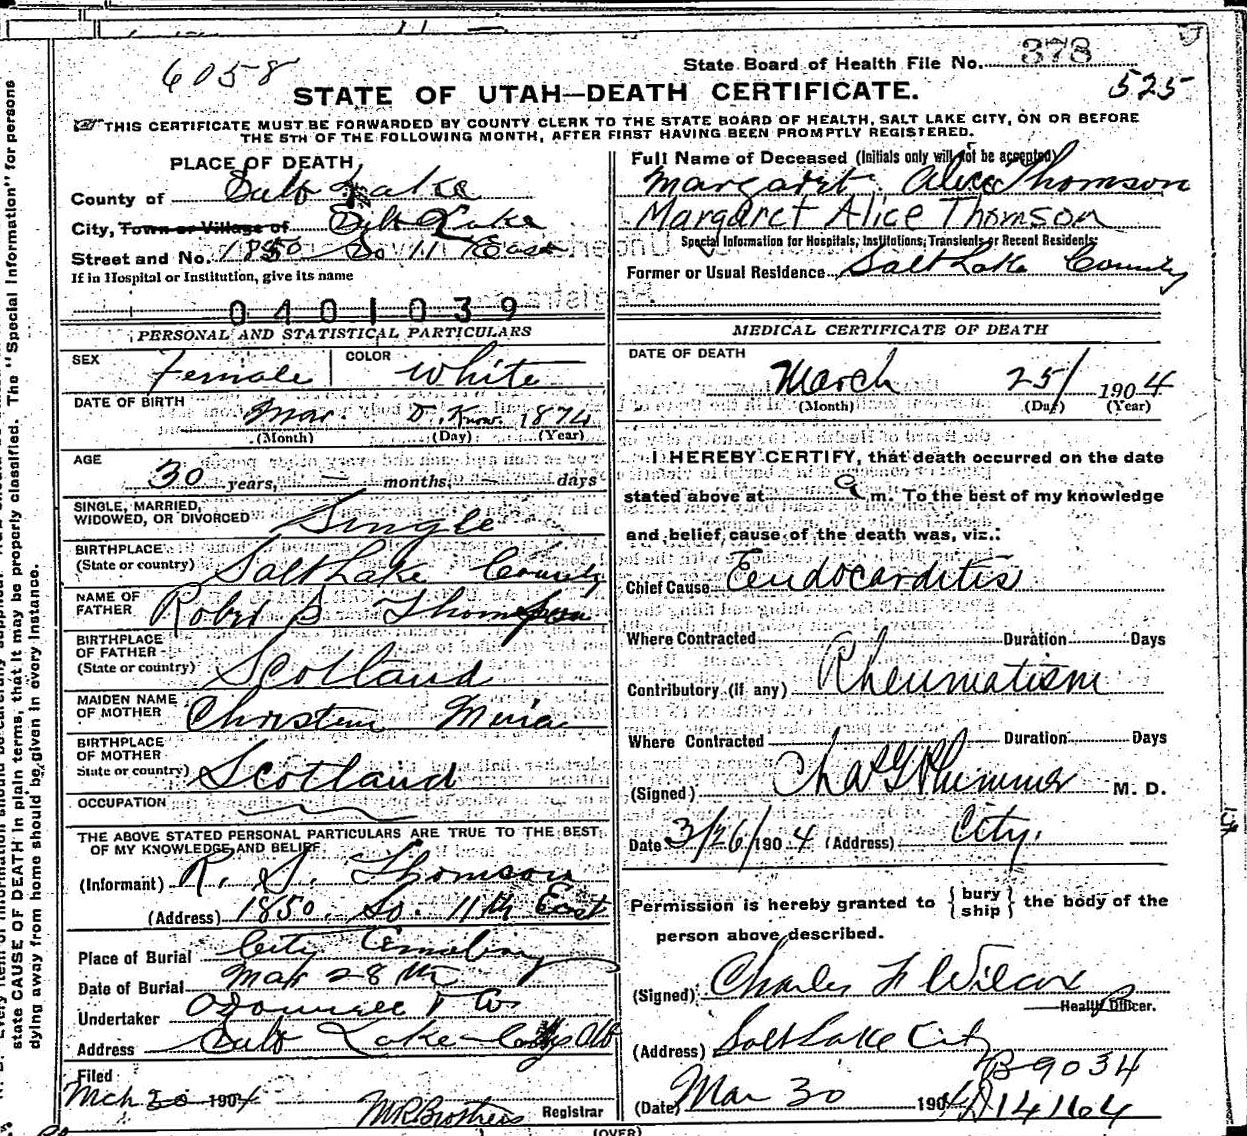 State Board of Health File No. 378
6058
525
STATE OF UTAH—DEATH CERTIFICATE.
THIS CERTIFICATE MUST BE FORWARDED BY COUNTY CLERK TO THE STATE BOARD OF HEALTH, SALT LAKE CITY, ON OR BEFORE
THE 5TH OF THE FOLLOWING MONTH, AFTER FIRST HAVING BEEN PROMPTLY REGISTERED.
PLACE OF DEATH,
County of Salt Lake
City, Town or Village of Salt Lake
Street and No. 1850 So 11 East
If in Hospital or Institution, give its name
0401039
PERSONAL AND STATISTICAL PARTICULARS
SEX Female COLOR White
DATE OF BIRTH Mar. D. Know. 1874
(Month) (Day) (Year)
AGE
30 years, — months, — days
SINGLE, MARRIED,
WIDOWED, OR DIVORCED Single
BIRTHPLACE
(State or country) Salt Lake County
NAME OF
FATHER Robert S Thomson
BIRTHPLACE
OF FATHER
(State or country) Scotland
MAIDEN NAME
OF MOTHER Christem
BIRTHPLACE
OF MOTHER
State or country) Scotland
OCCUPATION
THE ABOVE STATED PERSONAL PARTICULARS ARE TRUE TO THE BEST
OF MY KNOWLEDGE AND BELIEF.
(Informant) R. S. Thomson
(Address) 1850 So. 11th East
Place of Burial City
Date of Burial Mar 28th
Undertaker Odonnell & Co
Address Salt Lake City
Filed
Mch 30 1904
M R Brothers Registrar
Full Name of Deceased (Initials only will not be accepted)
Margaret Alice Thomson
Margaret Alice Thomson
Special Information for Hospitals, Institutions, Transients or Recent Residents
Former or Usual Residence Salt Lake County
MEDICAL CERTIFICATE OF DEATH
DATE OF DEATH
March 25/ 1904
(Month) (Day) (Year)
I HEREBY CERTIFY, that death occurred on the date
stated above at a m. To the best of my knowledge
and belief, cause of the death was, viz.:
Chief Cause Endocarditis
Where Contracted Duration Days
Contributory (if any) Rheumatism
Where Contracted Duration Days
(Signed) Chas G Plummer M. D.
Date 3/26/1904 (Address) City.
Permission is hereby granted to {bury
ship} the body of the
person above described.
(Signed) Charles F Wilcox
Health Officer.
(Address) Salt Lake City
B-9034
(Date) Mar 30 1904 D14164
(OVER)
state CAUSE OF DEATH in plain terms, that it may be properly classified. The "Special Information" for persons
dying away from home should be given in every instance.